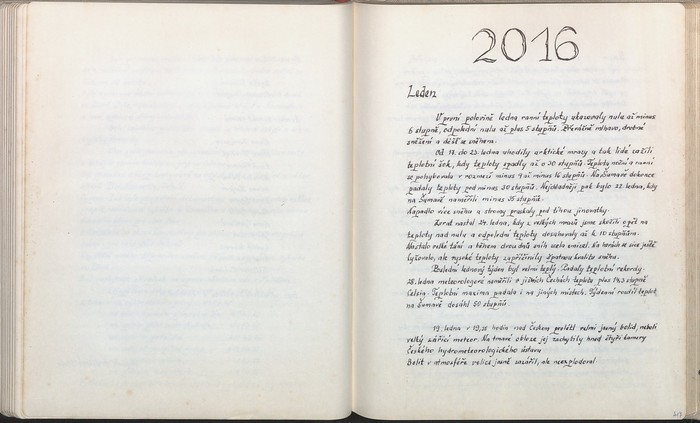 2016
Leden
V první polovině ledna ranní teploty ukazovaly nula až minus
6 stupně, odpolední nula až plus 5 stupňů. Převážně mlhavo, drobné
sněžení a déšť se sněhem.
Od 17. do 23. ledna uhodily arktické mrazy a tak lidé zažili
teplotní šok, kdy teploty spadly až o 30 stupňů. Teplota noční a ranní
se pohybovala v rozmezí minus 9 až minus 16 stupňů. Na Šumavě dokonce
padaly teploty pod minus 30 stupňů. Nejchladněji pak bylo 22. ledna, kdy
na Šumavě naměřili minus 35 stupňů.
Napadlo více sněhu a stromy praskaly pod tíhou jinovatky.
Zvrat nastal 24. ledna, kdy z velkých mrazů jsme skočili opět na
teploty nad nulu a odpolední teploty dosahovaly až k 10 stupňům.
Nastalo velké tání a během dvou dnů sníh zcela zmizel. Na horách se sice ještě
lyžovalo, ale vysoké teploty zapříčinily špatnou kvalitu sněhu.
Poslední lednový týden byl velmi teplý. Padaly teplotní rekordy.
28. ledna meteorologové naměřili v jižních Čechách teplotu plus 14,3 stupně
Celsia. Teplotní maxima padala i na jiných místech. Týdenní rozdíl teplot
na Šumavě dosáhl 50 stupňů.
19. ledna v 19,25 hodin nad Českem prolétl velmi jasný bolid, neboli
velký zářící meteor. Na tmavé obloze jej zachytily hned čtyři kamery
Českého hydrometeorologického ústavu
Bolit v atmosféře velice jasně zazářil, ale neexplodoval.